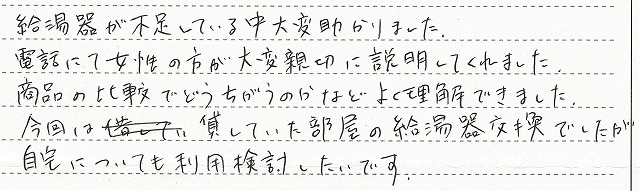 給湯器が不足している中大変助かりました.
電話にて女性の方が大変親切に説明してくれました.
商品の比較でどうちがうのかなどよく理解できました.
今回は貸していた部屋の給湯器交換でしたが
自宅についても利用検討したいです.